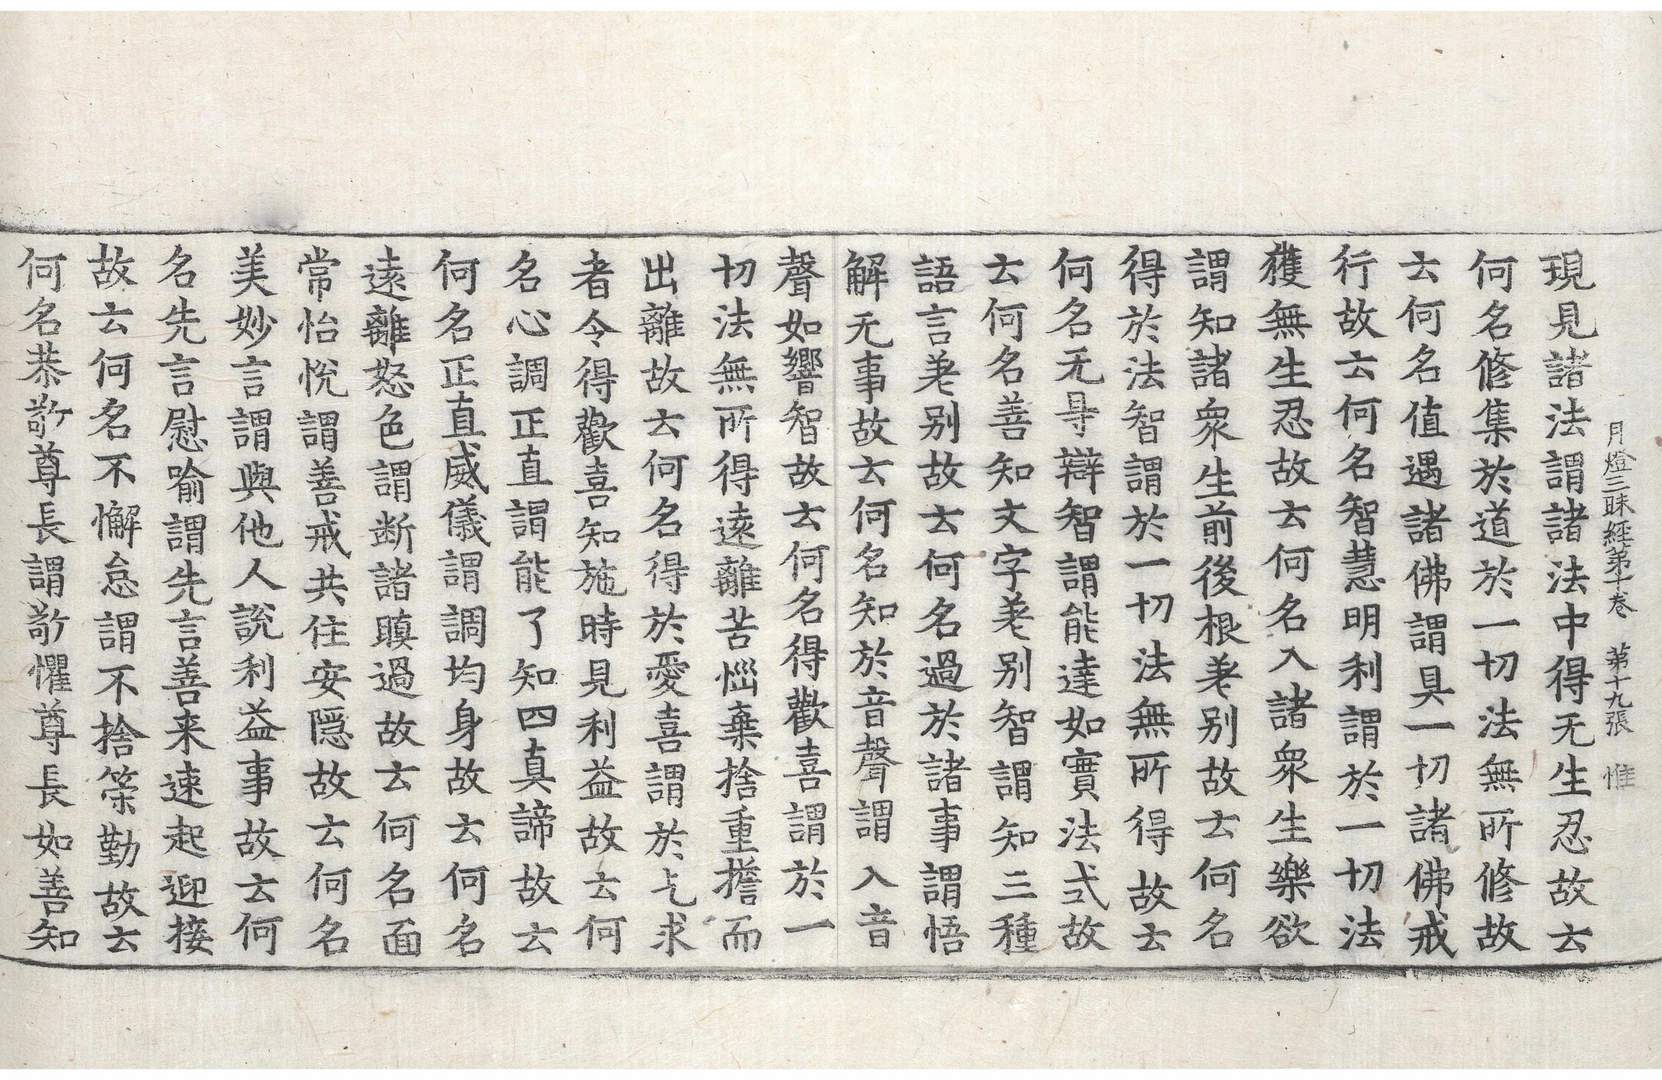 月燈三昧經第十卷　第十九張　惟
現見諸法謂諸法中得无生忍故云
何名修集於道於一切法無所修故
云何名值遇諸佛謂具一切諸佛戒
行故云何名智慧明利謂於一切法
獲無生忍故云何名入諸衆生樂欲
謂知諸衆生前後根差别故云何名
得於法智謂於一切法無所得故云
何名无㝵辯智謂能達如實法式故
云何名善知文字差别智謂知三種
語言差别故云何名過於諸事謂悟
解无事故云何名知於音聲謂入音
聲如響智故云何名得歡喜謂於一
切法無所得遠離苦惱棄捨重擔而
出離故云何名得於愛喜謂於乞求
者令得歡喜知施時見利益故云何
名心調正直謂能了知四真諦故云
何名正直威儀謂調均身故云何名
遠離怒色謂断諸瞋過故云何名面
常怡悅謂善戒共住安隱故云何名
美妙言謂與他人說利益事故云何
名先言慰喻謂先言善来速起迎接
故云何名不懈怠謂不捨策勤故云
何名恭敬尊長謂敬懼尊長如善知